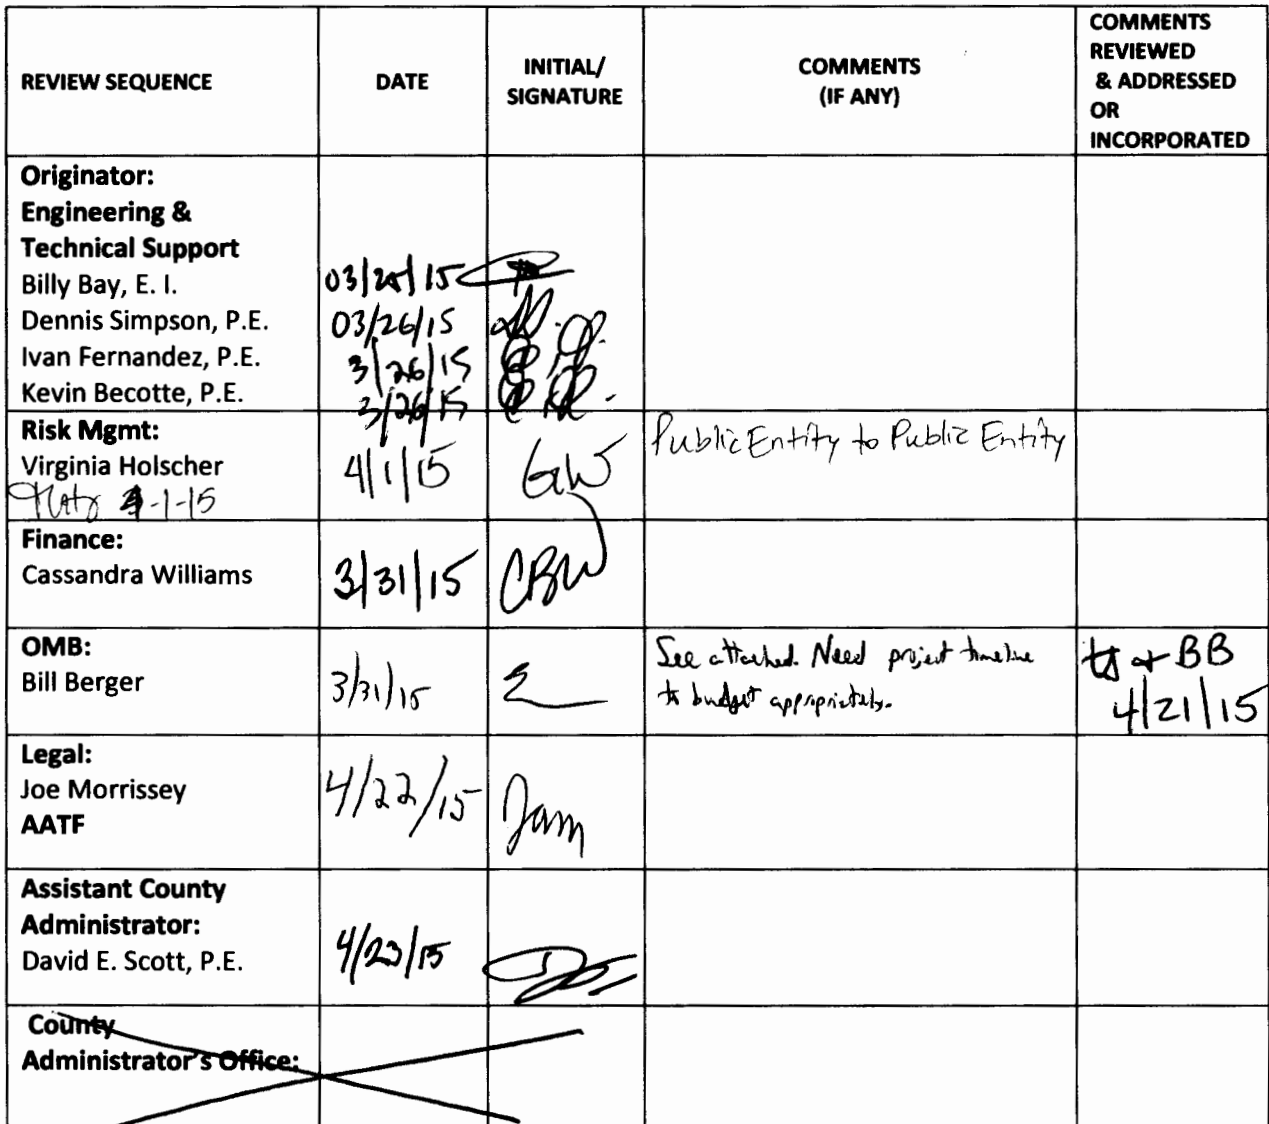 REVIEW SEQUENCE
DATE
INITIAL/
SIGNATURE
COMMENTS
(IF ANY)
COMMENTS
REVIEWED
& ADDRESSED
OR
INCORPORATED
Originator:
Engineering &
Technical Support
Billy Bay, E. I.
Dennis Simpson, P.E. 03/26/15
Ivan Fernandez, P.E. 3/26/15
Kevin Becotte, P.E. 3/26/15
Risk Mgmt:
Virginia Holscher 4/1/15 Public Entity to Public Entity
-1-15
Finance:
Cassandra Williams 3/31/15 CBW
OMB:
Bill Berger 3/31/15
See attached. Need project timeline
to budget appropriately.
BB
4/21/15
Legal:
Joe Morrissey 4/22/15 Jam
AATF
Assistant County
Administrator:
David E. Scott, P.E. 4/23/15
County
Administrator's Office: